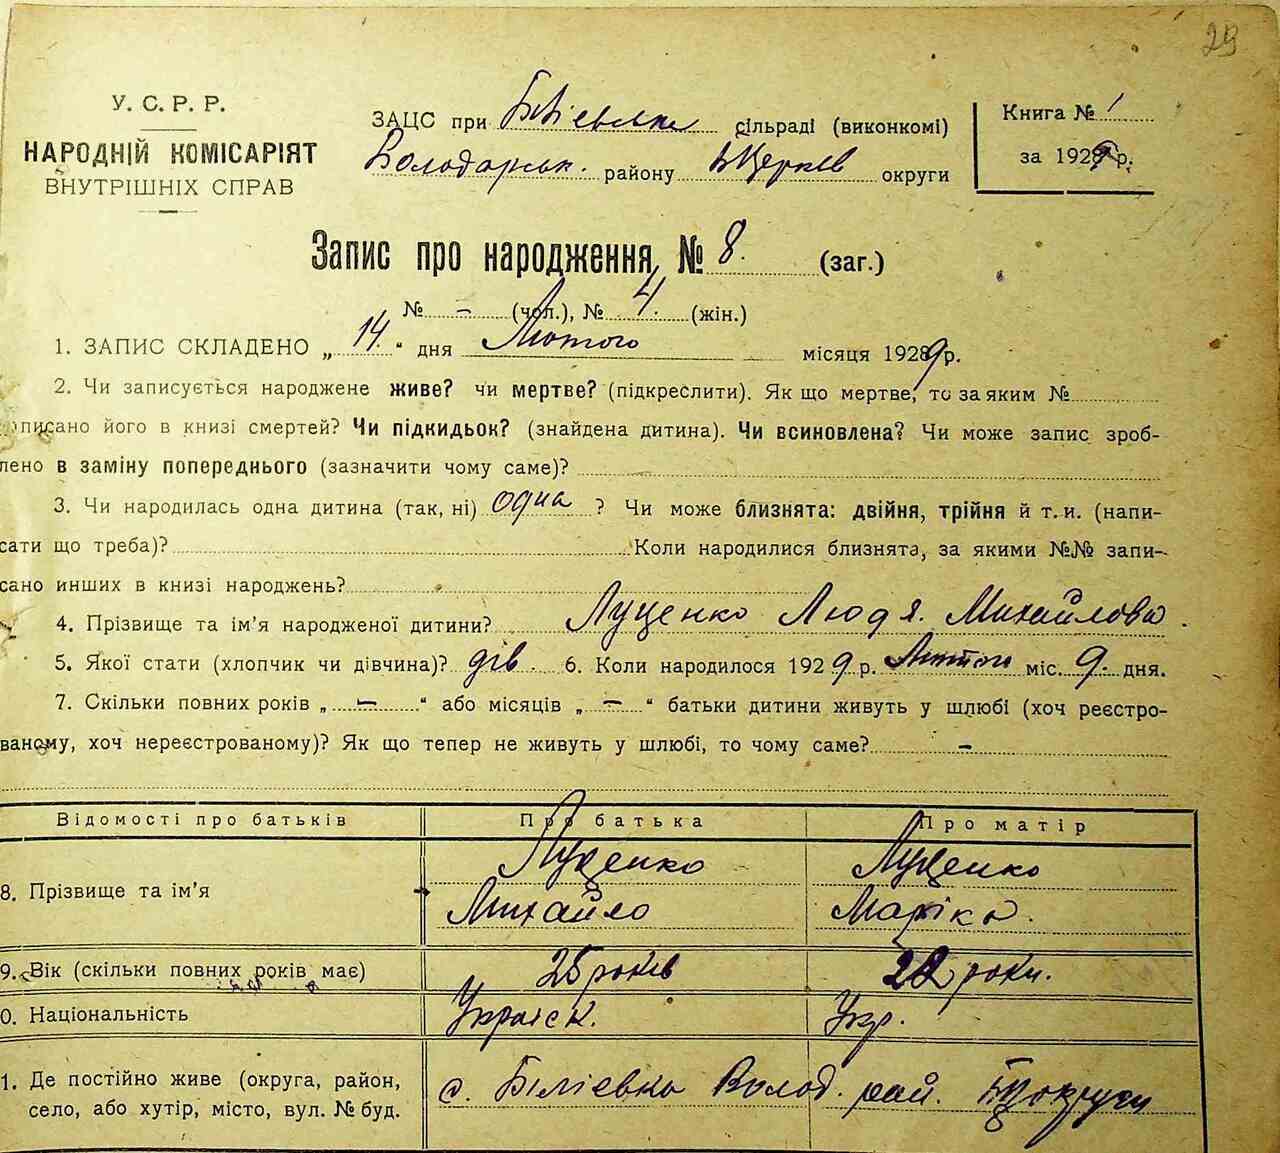 29
У. С. Р. Р.
НАРОДНІЙ КОМІСАРІЯТ
ВНУТРІШНІХ СПРАВ
ЗАЦС при сільраді (виконкомі)
Володарськ. району БЦерків округи
Книга № 1
за 1929 р.
Запис про народження, № 8. (заг.)
№ – (чол.), № 4 (жін.)
1. ЗАПИС СКЛАДЕНО „ 14 “ дня Лютого місяця 1929 р.
2. Чи записується народжене живе? чи мертве? (підкреслити). Як що мертве, то за яким №
записано його в книзі смертей? Чи підкидьок? (знайдена дитина). Чи всиновлена? Чи може запис зроб-
лено в заміну попереднього (зазначити чому саме)?
3. Чи народилась одна дитина (так, ні) одна ? Чи може близнята: двійня, трійня й т. и. (напи-
сати що треба)? Коли народилися близнята, за якими №№ запи-
сано инших в книзі народжень?
4. Прізвище та ім'я народженої дитини? Луценко Людя. Михайлова.
5. Якої стати (хлопчик чи дівчина)? дів. 6. Коли народилося 1929 р. Лютого міс. 9. дня.
7. Скільки повних років „ – “ або місяців „ – “ батьки дитини живуть у шлюбі (хоч реєстро-
ваному, хоч нереєстрованому)? Як що тепер не живуть у шлюбі, то чому саме? –
Відомості про батьків Про батька Про матір
8. Прізвище та ім'я Луценко Михайло Луценко Маріка.
9. Вік (скільки повних років має) 25 років 22 роки.
0. Національність Украіск. Укр.
1. Де постійно живе (округа, район, с. Біліевка Волод. рай. БЦокруги
село, або хутір, місто, вул. № буд.